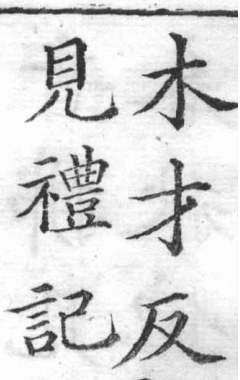 木才反
見禮記